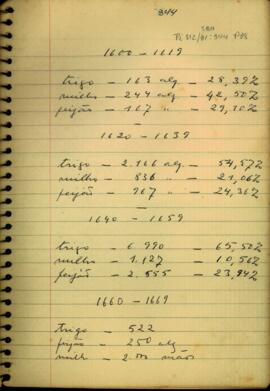 344
1600 - 1619
trigo - 163 alq - 28,39%
milho - 244 alq - 42,50%
feijão - 167 " - 29,10%
1620 - 1639
trigo - 2.166 alq - 54,57%
milho - 836 - 21,06%
feijão - 967 " - 24,36%
1640 - 1659
trigo - 6 990 - 65,50%
milho - 1.127 - 10,56%
feijão - 2.555 - 23,94%
1660 - 1669
trigo - 522
feijão - 250 alq
milh - 2.000 mãos